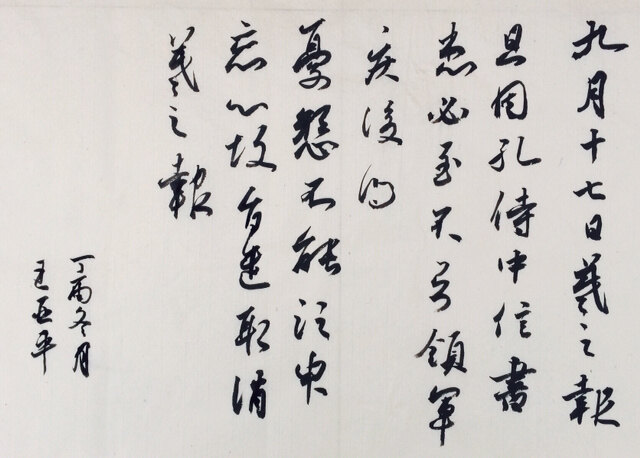 九月十七日羲之報
且因孔侍中信書
想必至不知領軍
疾後問
憂懸不能須臾
忘心故旨遣取消
羲之報
丁酉冬月
王亚平